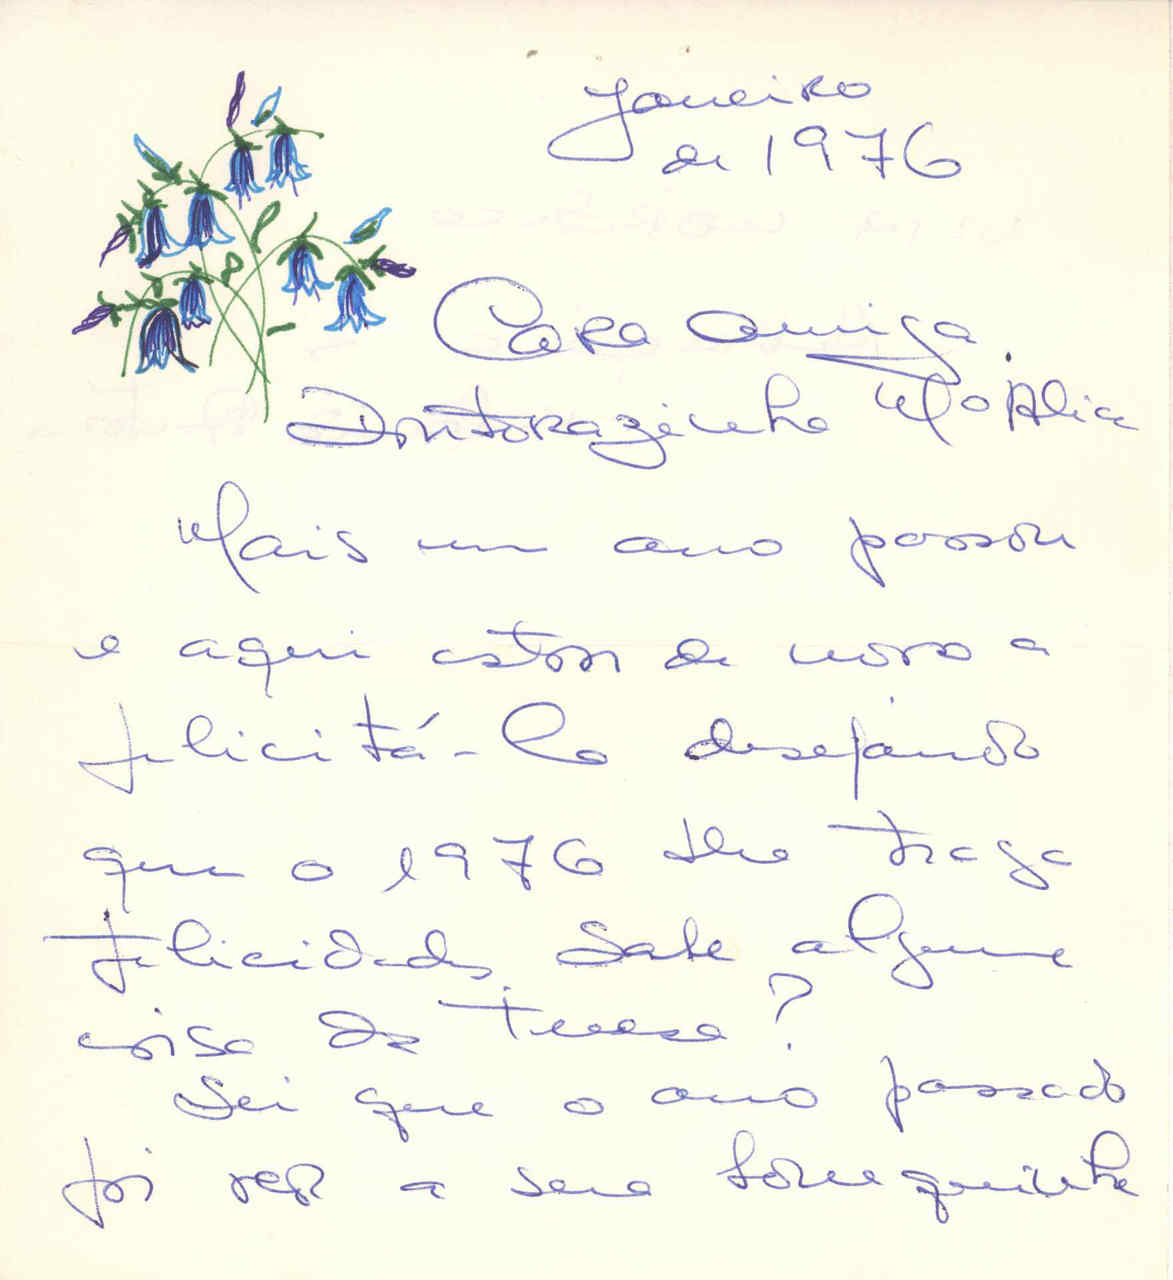 Janeiro
de 1976
Cara Amiga
Doutorazinha Mª Alice
Mais um ano passou
e aqui estou de novo a
felicitá-la desejando
que o 1976 lhe traga
felicidades Sabe alguma
coisa da Tereza?
Sei que o ano passado
foi ver a sua